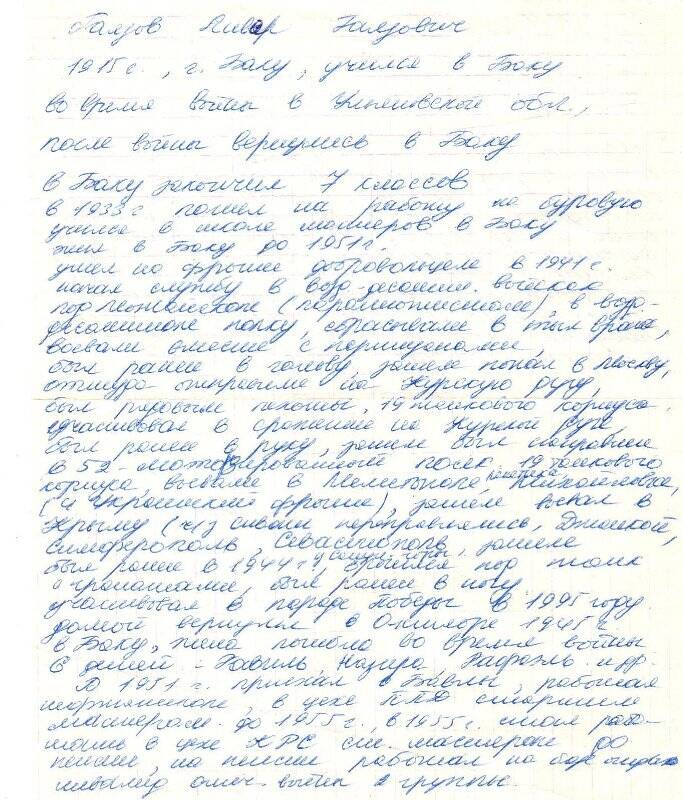 Анвер
1915 г., г. Баку, учился в Баку
во время войны в Ульяновской обл.,
после войны вернулись в Баку
в Баку закончил 7 классов
в 1933 г пошел на работу на буровую
учился в школе мастеров в Баку
жил в Баку до 1951 г.
ушел на фронт добровольцем в 1941 г.
начал службу в возд-десантн. войсках
под (парашютистом), в возд-
десантном полку, сбрасывали в тыл врага,
воевали вместе с партизанами,
был ранен в голову, затем попал в Москву,
оттуда отправили на Курскую дугу,
был рядовым пехоты, 19 танкового корпуса.
участвовал в сражении на Курской дуге,
был ранен в руку, затем был направлен
в 52-мотоциклированный полк 19 танкового
корпуса, воевали в Мелитополе, Михайловка,
(4 Украинский фронт), затем воевал в
Крыму (чз Сиваш переправлялись, Джанкой,
Симферополь, Севастополь, затем
был ранен в 1944 г, бросился под танк
с гранатами, был ранен в ногу
участвовал в параде Победы в 1995 году.
домой вернулся в Октябре 1945 г
в Баку, жена погибла во время войны
6 детей - Равиль, Назира, Рафаэль и др.
В 1951 г. приехал в Бавлы, работал
в цехе ППД старшим
мастером до 1955 г., в 1955 г. стал рабо-
тать в цехе КРС ст. мастером до
пенсии, на пенсии работал на
инвалид отеч. войны 2 группы.